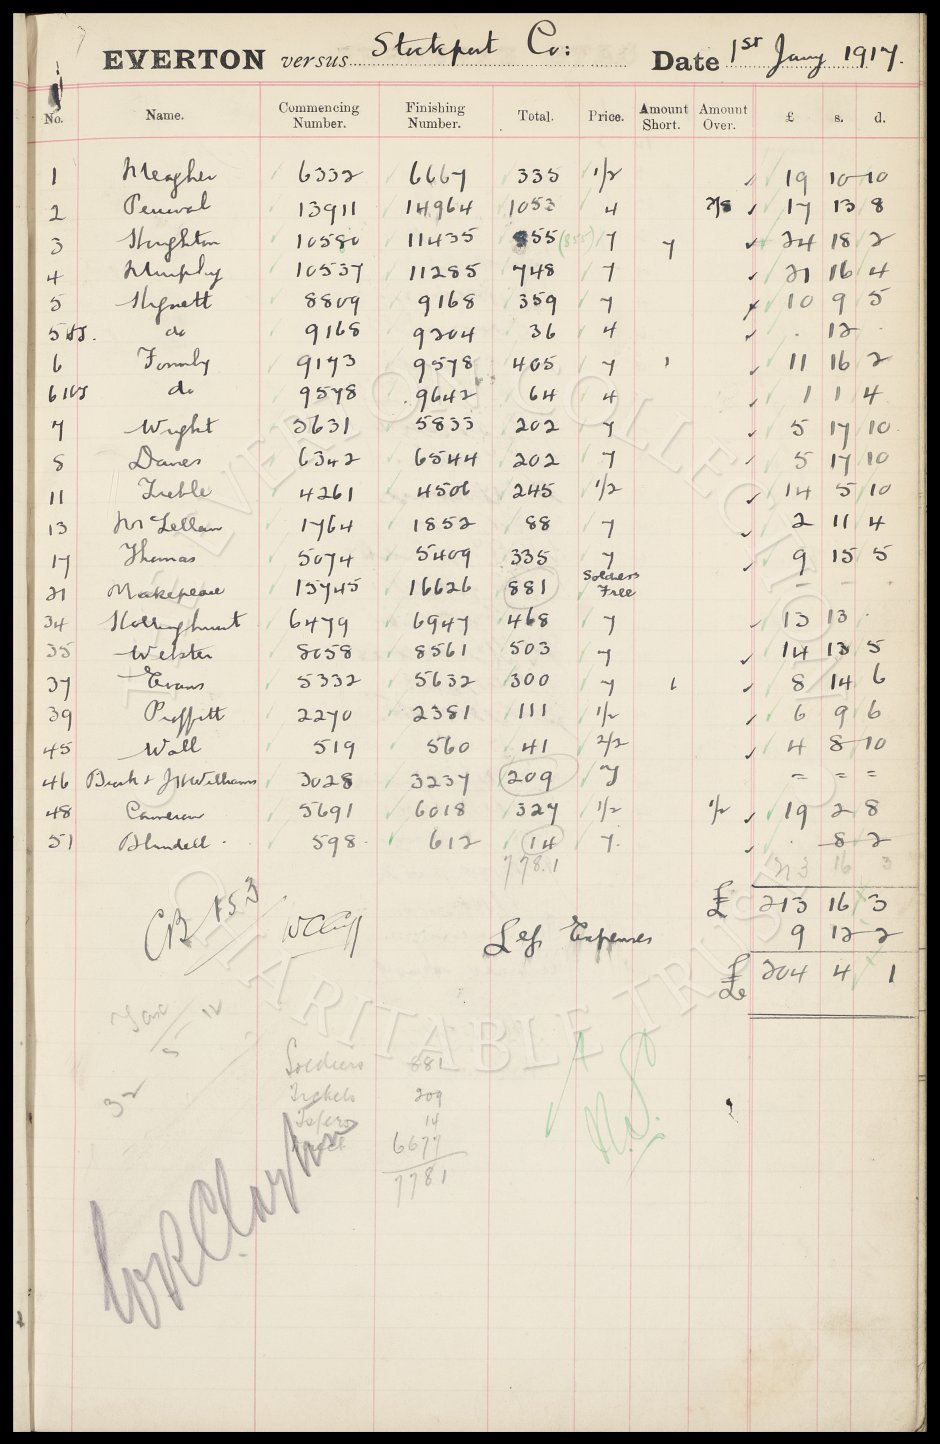 EVERTON versus Stockport Co: Date 1st Jany 1917.
No. Name. Commencing Number. Finishing Number. Total. Price. Amount Short. Amount Over. £ s. d.
1 Meagher 6332 6667 335 1/2 19 10 10
2 Percival 13911 14964 1053 4 2/8 17 13 8
3 Houghton 10580 11435 855 (855) 7 7 24 18 2
4 Murphy 10537 11285 748 7 21 16 4
5 Hignett 8809 9168 359 7 10 9 5
5 do 9168 9204 36 4 . 12 .
6 Formby 9173 9578 405 7 1 11 16 2
6 do 9578 9642 64 4 1 1 4
7 Wright 5631 5833 202 7 5 17 10
8 Davies 6342 6544 202 7 5 17 10
11 Treble 4261 4506 245 1/2 14 5 10
13 McLellan 1764 1852 88 7 2 11 4
17 Thomas 5074 5409 335 7 9 15 5
21 Makepeace 15745 16626 881 Soldiers Free - - -
34 Hollinghurst 6479 6947 468 7 13 13 .
35 Webster 8058 8561 503 7 14 13 5
37 Evans 5332 5632 300 7 1 8 14 6
39 Proffitt 2270 2381 111 1/2 6 9 6
45 Wall 519 560 41 2/2 4 8 10
46 Beck & JH Williams 3028 3237 209 "7 = = =
48 Cameron 5691 6018 327 1/2 1/2 19 2 8
51 Blundell . 598 . 612 14 7 . . 8 2
7781 213 16 3
£ 213 16 3
CB 153
Less Expenses 9 12 2
£ 204 4 1
Tax
32
Soldiers 881
Tickets 209
14
6677
7781
WR Clayton
EVERTON COLLECTION CHARITABLE TRUST